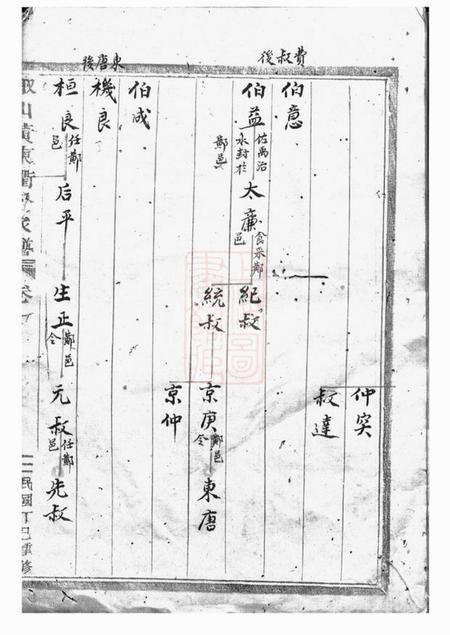 費叔後
東唐後
仲突
叔達
伯意
伯益 佐禹治水封於鄭邑 太廉 食采鄭邑 紀叔
統叔 京庚 鄭邑令 東唐
京仲
伯成
機良
桓良 任鄭邑 后平 生正 鄭邑令 元叔 任鄭邑 先叔
山 譜 卷
民國丁巳重修